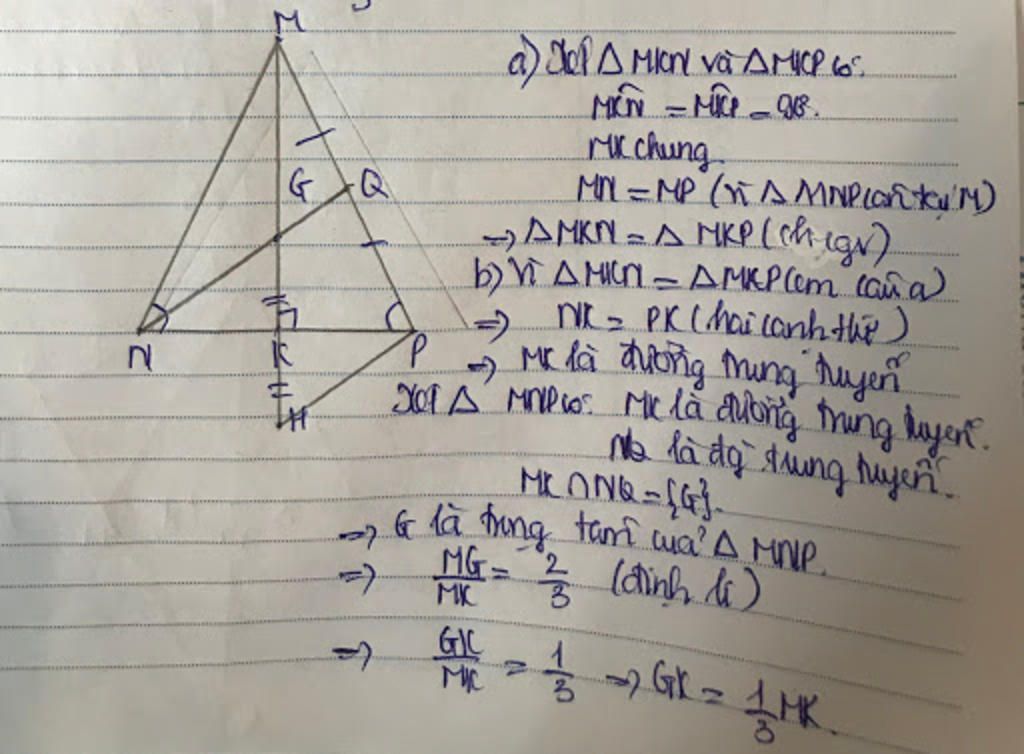 M
G
Q
N
K
P
H
a) Xét △ MKN và △ MKP có:
MK̂N = MK̂P = 90°.
MK chung
MN = MP (vì △ MNP cân tại M)
→ △ MKN = △ MKP (ch-cgv)
b) Vì △ MKN = △ MKP (cm câu a)
=> NK = PK (hai cạnh t/ứ)
→ MK là đường trung tuyến
Xét △ MNP có: MK là đường trung tuyến.
NQ là đg` trung tuyến.
MK ∩ NQ = {G}.
=> G là trọng tâm của △ MNP.
=> MG/MK = 2/3 (định lí)
=> GK/MK = 1/3 → GK = 1/3 MK.